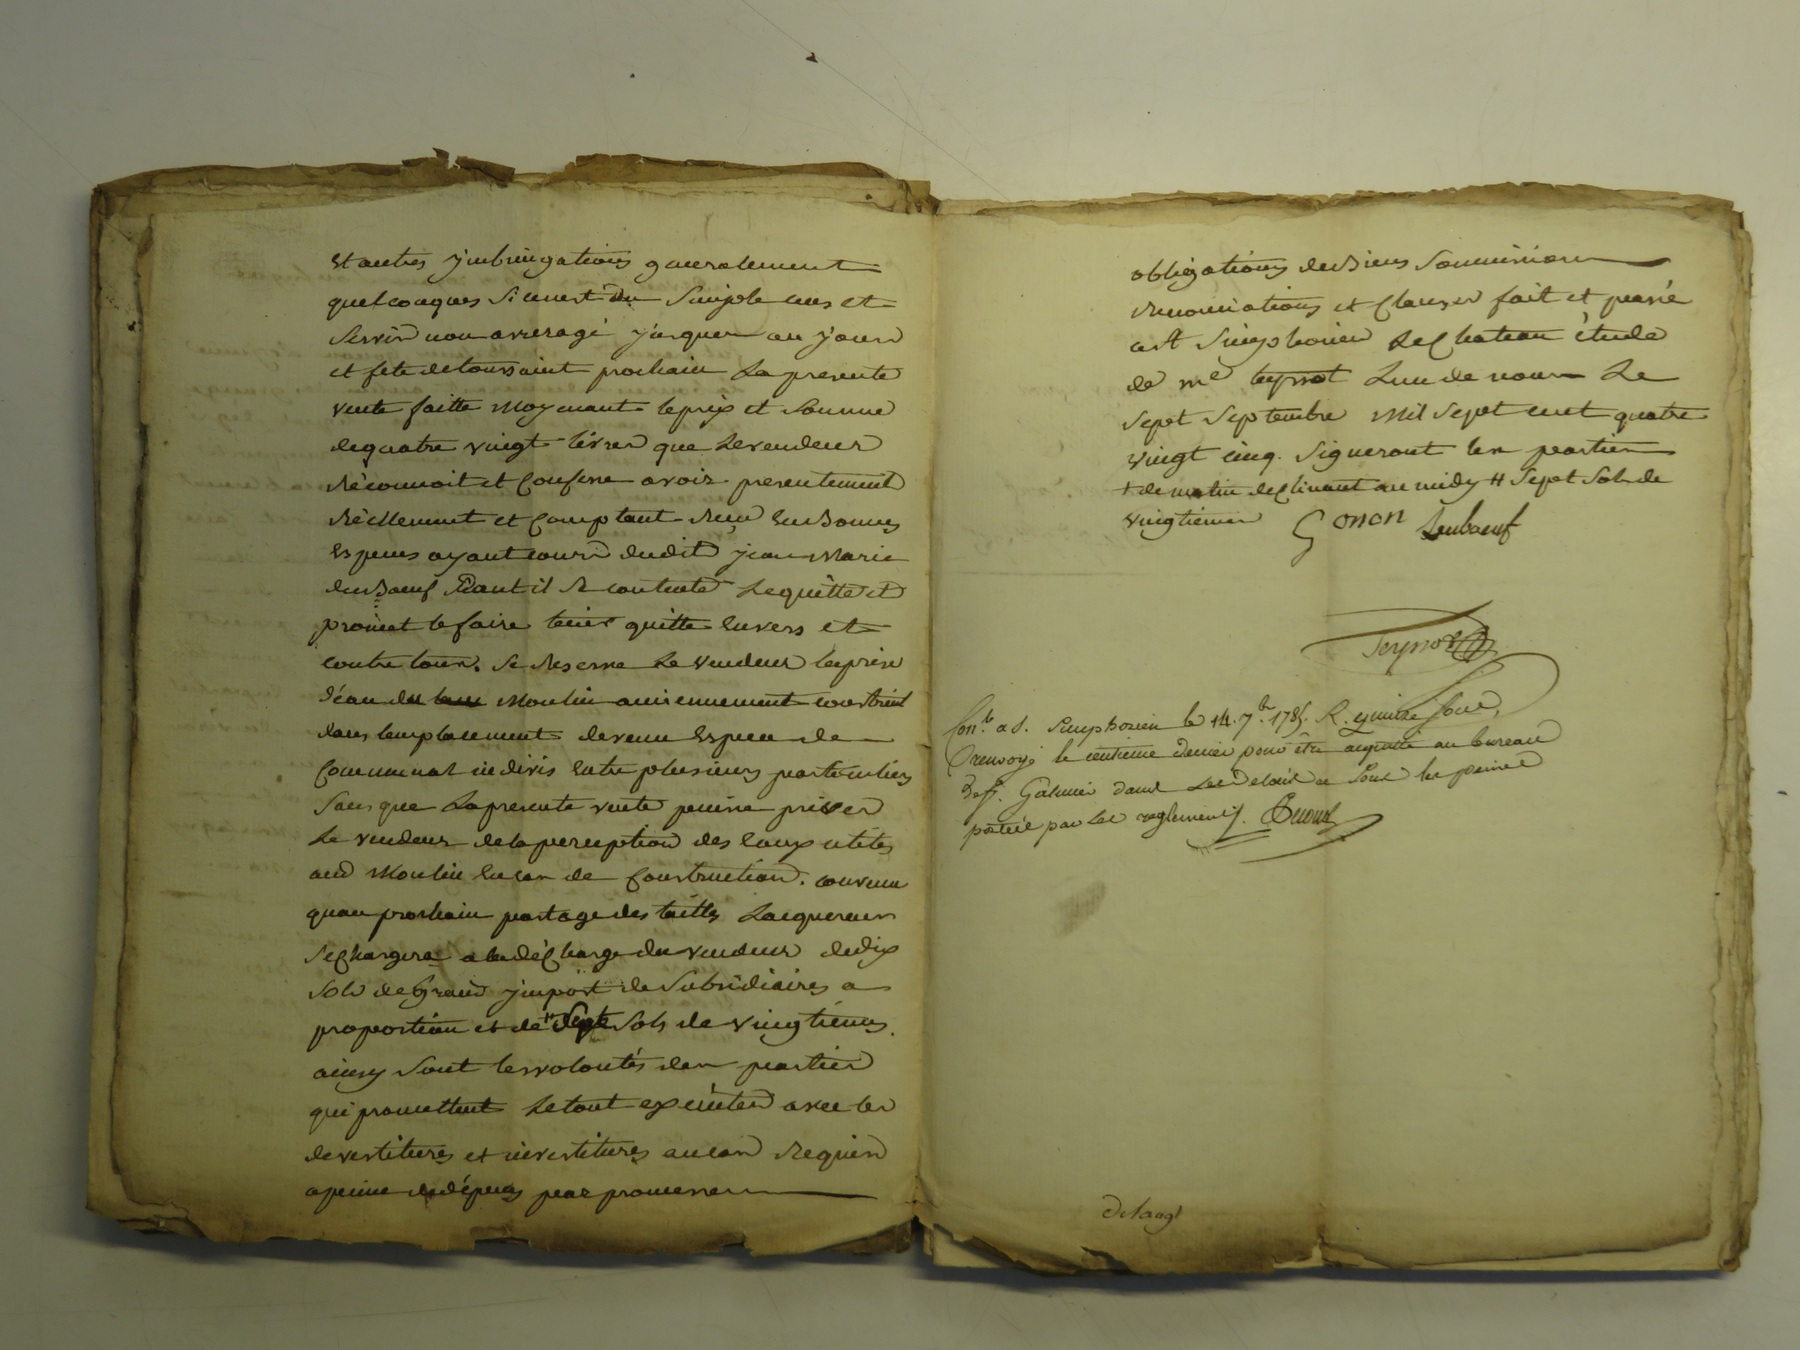 et autres ymbringations generalement
quelconques si cenest du simple cens et
servis non arreragé jusques au jour
et fete de toussaint prochain La presente
vente faitte moyenant le prix et somme
de quatre vingt livres que Le vendeur
Réconnoit et Confesse avoir presentement
Réellement et Comptant Reçu En bonnes
Especes ayant cours dudit jean Marie
duboeuf Dont il Se contente Le quitte et
promet le faire tenir quitte Envers et
contre tous. Se Reserve Le vendeur la prise
d'eau du Moulin anciennement construit
dans lemplacement devenu Espece de
Communal indivis Entre plusieurs particuliers
Sans que La presente vente puisse priver
Le vendeur de la perception des Eaux utiles
aud Moulin En cas de Construction. convenu
quau prochain partage des tailles Lacquereur
Se Chargera a la dé Charge du vendeur de dix
Sols de Grand ymport de Subsidiaires a
proportion et de # Sept Sols de vingtiemes.
ainsy Sont les volontés des parties
qui promettent Le tout exécuter avec les
devestitures et investitures au cas Requis
a peine de dépens par promesses
obligations de Biens Soumissions
Renonciations et Clauses fait et passé
a St Simphorien Le Chateau étude
de me teyssot L'un de nous Le
Sept Septembre Mil Sept cent quatre
vingt cinq. Signeront les parties
+ de matin declinant au midy # Sept Sols de
vingtiemes Gonon Dubœuf
Teyssot
Con.le a S. Simphorien le 14. 7.bre 1785. R. quinze Sous,
Renvoyé le centieme denier pour être acquitté au bureau
de St. Galmier dans Les delais et Sous les peines
portées par Les reglements.